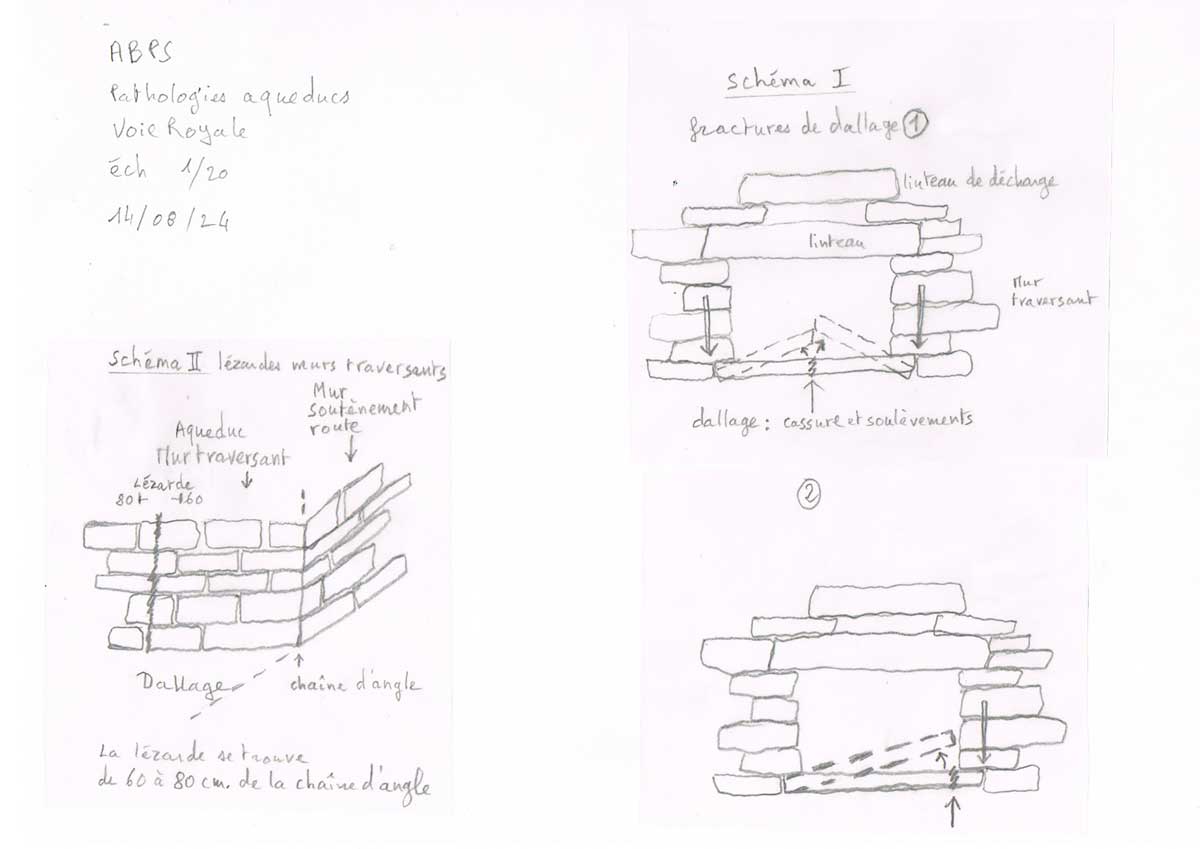 ABPS
Pathologies aqueducs
Voie Royale
éch 1/20
14/08/24
Schéma I
fractures de dallage 1
linteau de décharge
linteau
Mur
traversant
dallage : cassure et soulèvements
Schéma II lézardes murs traversants
Mur
soutènement
route
Aqueduc
Mur traversant
Lézarde
80 60
Dallage
chaîne d'angle
La lézarde se trouve
de 60 à 80 cm. de la chaîne d'angle
2